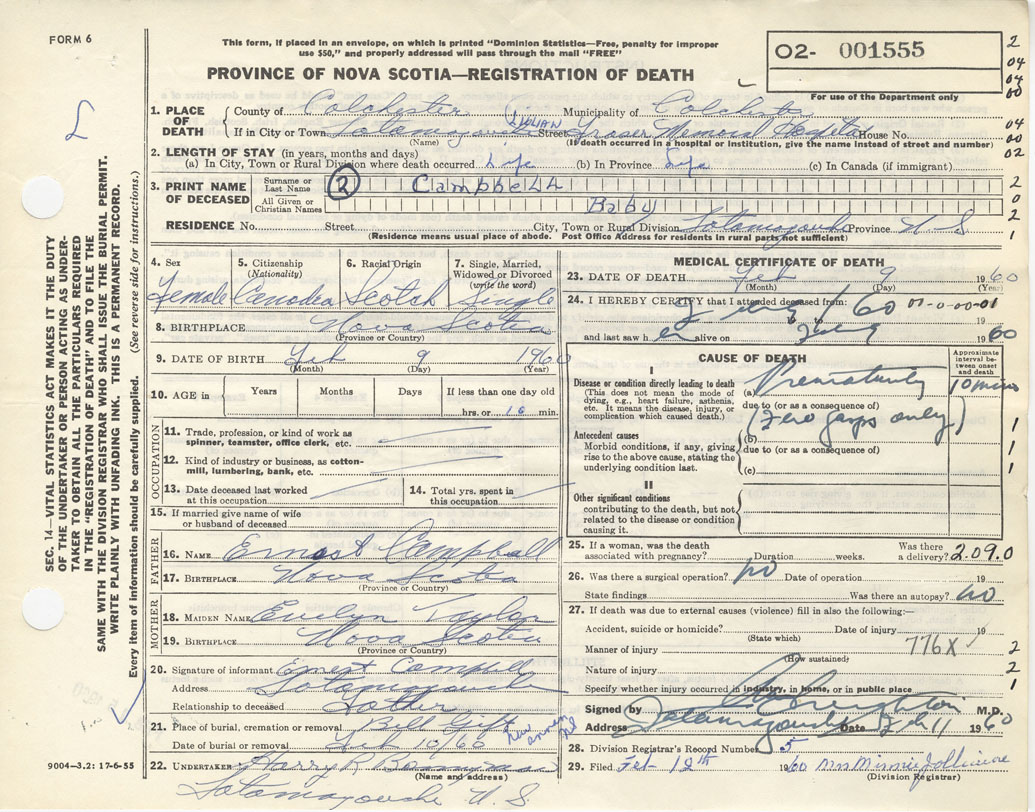 FORM 6
This form, if placed in an envelope, on which is printed "Dominion Statistics—Free, penalty for improper
use $50," and properly addressed will pass through the mail "FREE"
PROVINCE OF NOVA SCOTIA—REGISTRATION OF DEATH
O2- 001555
For use of the Department only
2
04
04
00
04
00
02
2
0
2
1
SEC. 14—VITAL STATISTICS ACT MAKES IT THE DUTY
OF THE UNDERTAKER OR PERSON ACTING AS UNDER-
TAKER TO OBTAIN ALL THE PARTICULARS REQUIRED
IN THE "REGISTRATION OF DEATH" AND TO FILE THE
SAME WITH THE DIVISION REGISTRAR WHO SHALL ISSUE THE BURIAL PERMIT.
WRITE PLAINLY WITH UNFADING INK. THIS IS A PERMANENT RECORD.
Every item of information should be carefully supplied. (See reverse side for instructions.)
1. PLACE OF DEATH
County of Colchester Municipality of Colchester
If in City or Town Tatamagouche Street Lillian Fraser Memorial Hospital House No.
(Name) (If death occurred in a hospital or institution, give the name instead of street and number)
2. LENGTH OF STAY (in years, months and days)
(a) In City, Town or Rural Division where death occurred Life (b) In Province Life (c) In Canada (if immigrant)
3. PRINT NAME OF DECEASED
Surname or Last Name R Campbell
All Given or Christian Names Baby
RESIDENCE No. Street City, Town or Rural Division Tatamagouche Province N S
(Residence means usual place of abode. Post Office Address for residents in rural parts not sufficient)
4. Sex Female
5. Citizenship (Nationality) Canadian
6. Racial Origin Scotch
7. Single, Married, Widowed or Divorced (write the word) Single
8. BIRTHPLACE Nova Scotia
(Province or Country)
9. DATE OF BIRTH Feb 9 1960
(Month) (Day) (Year)
10. AGE in Years Months Days If less than one day
hrs. or 10 min.
OCCUPATION
11. Trade, profession, or kind of work as
spinner, teamster, office clerk, etc.
12. Kind of industry or business, as cotton-
mill, lumbering, bank, etc.
13. Date deceased last worked
at this occupation
14. Total yrs. spent in
this occupation
15. If married give name of wife
or husband of deceased
FATHER
16. NAME Ernest Campbell
17. BIRTHPLACE Nova Scotia
(Province or Country)
MOTHER
18. MAIDEN NAME Evelyn Taylor
19. BIRTHPLACE Nova Scotia
(Province or Country)
20. Signature of informant Ernest Campbell
Address Tatamagouche
Relationship to deceased Father
21. Place of burial, cremation or removal Bell Gift
Date of burial or removal Feb 10/60
22. UNDERTAKER Harry R
(Name and address)
Tatamagouche N. S.
9004—3.2: 17-6-55
MEDICAL CERTIFICATE OF DEATH
23. DATE OF DEATH Feb 9 1960
(Month) (Day) (Year)
24. I HEREBY CERTIFY that I attended deceased from:
9 Feb / 60
19 to 19
and last saw h er alive on 9 Feb 1960
CAUSE OF DEATH
Approximate interval between onset and death
I
Disease or condition directly leading to death
(This does not mean the mode of
dying, e.g., heart failure, asthenia,
etc. It means the disease, injury, or
complication which caused death.)
(a) Prematurity 10 mins
due to (or as a consequence of)
(few gasps only)
Antecedent causes
Morbid conditions, if any, giving
rise to the above cause, stating the
underlying condition last.
(b)
due to (or as a consequence of)
(c)
1
1
1
II
Other significant conditions
contributing to the death, but not
related to the disease or condition
causing it.
25. If a woman, was the death
associated with pregnancy? Duration weeks. Was there a delivery? 2.09.0
26. Was there a surgical operation? no Date of operation 19
State findings Was there an autopsy? no
27. If death was due to external causes (violence) fill in also the following:—
Accident, suicide or homicide? Date of injury 19
(State which)
Manner of injury 776X 2
(How sustained)
Nature of injury 2
Specify whether injury occurred in industry, in home, or in public place 1
Signed by Creighton M.D.
Address Tatamagouche Date Feb 11 1960
28. Division Registrar's Record Number 5
29. Filed Feb 12th 1960 Mrs Minnie Jollimore
(Division Registrar)